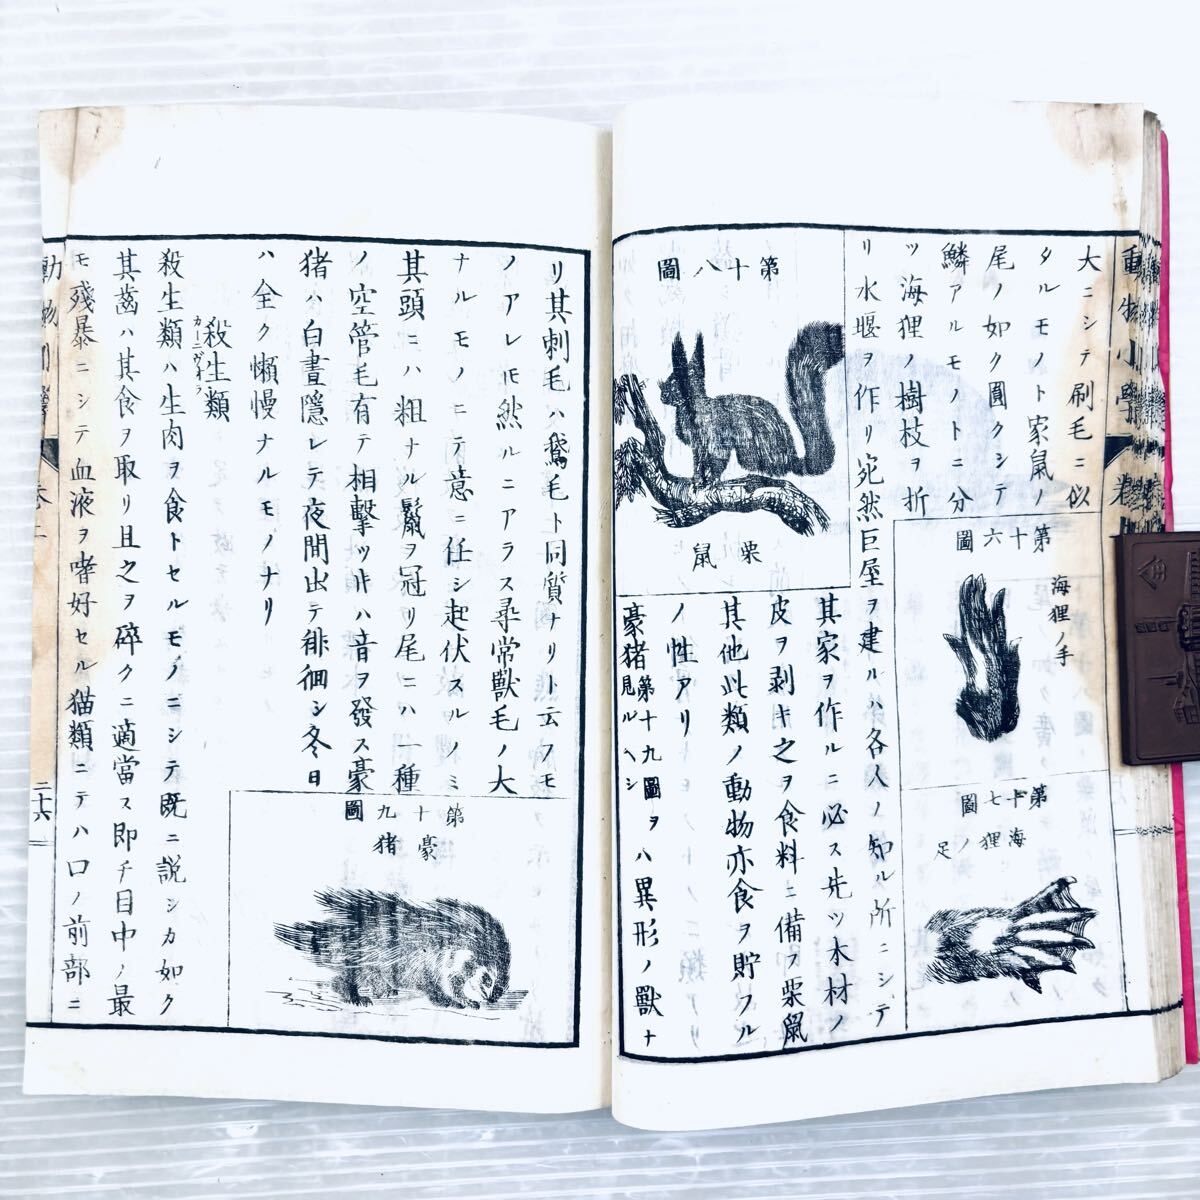 動物小學
大ニシテ刷毛ニ似
タルモノト家鼠ノ
尾ノ如ク圓クシテ
鱗アルモノトニ分
ツ海狸ノ樹枝ヲ折
リ水堰ヲ作リ宛然巨屋ヲ建ルハ各人ノ知ル所ニシテ
第十六圖
海狸ノ手
第十七圖
海狸ノ足
第十八圖
栗鼠
其家ヲ作ルニ必ス先ツ木材ノ
皮ヲ剥キ之ヲ食料ニ備フ栗鼠
其他此類ノ動物亦食ヲ貯フル
ノ性アリ
豪猪第十九圖ヲ見ルヘシハ異形ノ獸ナ
リ其刺毛ハ鵞毛ト同質ナリト云フモ
ノアレ𪜈然ルニアラス尋常獸毛ノ大
ナルモノニテ意ニ任シ起伏スルノミ
其頭ニハ粗ナル鬣ヲ冠リ尾ニハ一種
ノ空管毛有テ相擊ツ𪜀ハ音ヲ發ス豪
猪ハ白晝隱レテ夜間出テ徘徊シ冬日
ハ全ク懶慢ナルモノナリ
第十九圖
豪猪
殺生類
カーニヴォーラ
殺生類ハ生肉ヲ食トセルモノニシテ既ニ說シカ如ク
其齒ハ其食ヲ取リ且之ヲ碎クニ適當ス即チ目中ノ最
モ殘暴ニシテ血液ヲ嗜好セル猫類ニテハ口ノ前部ニ
二十六